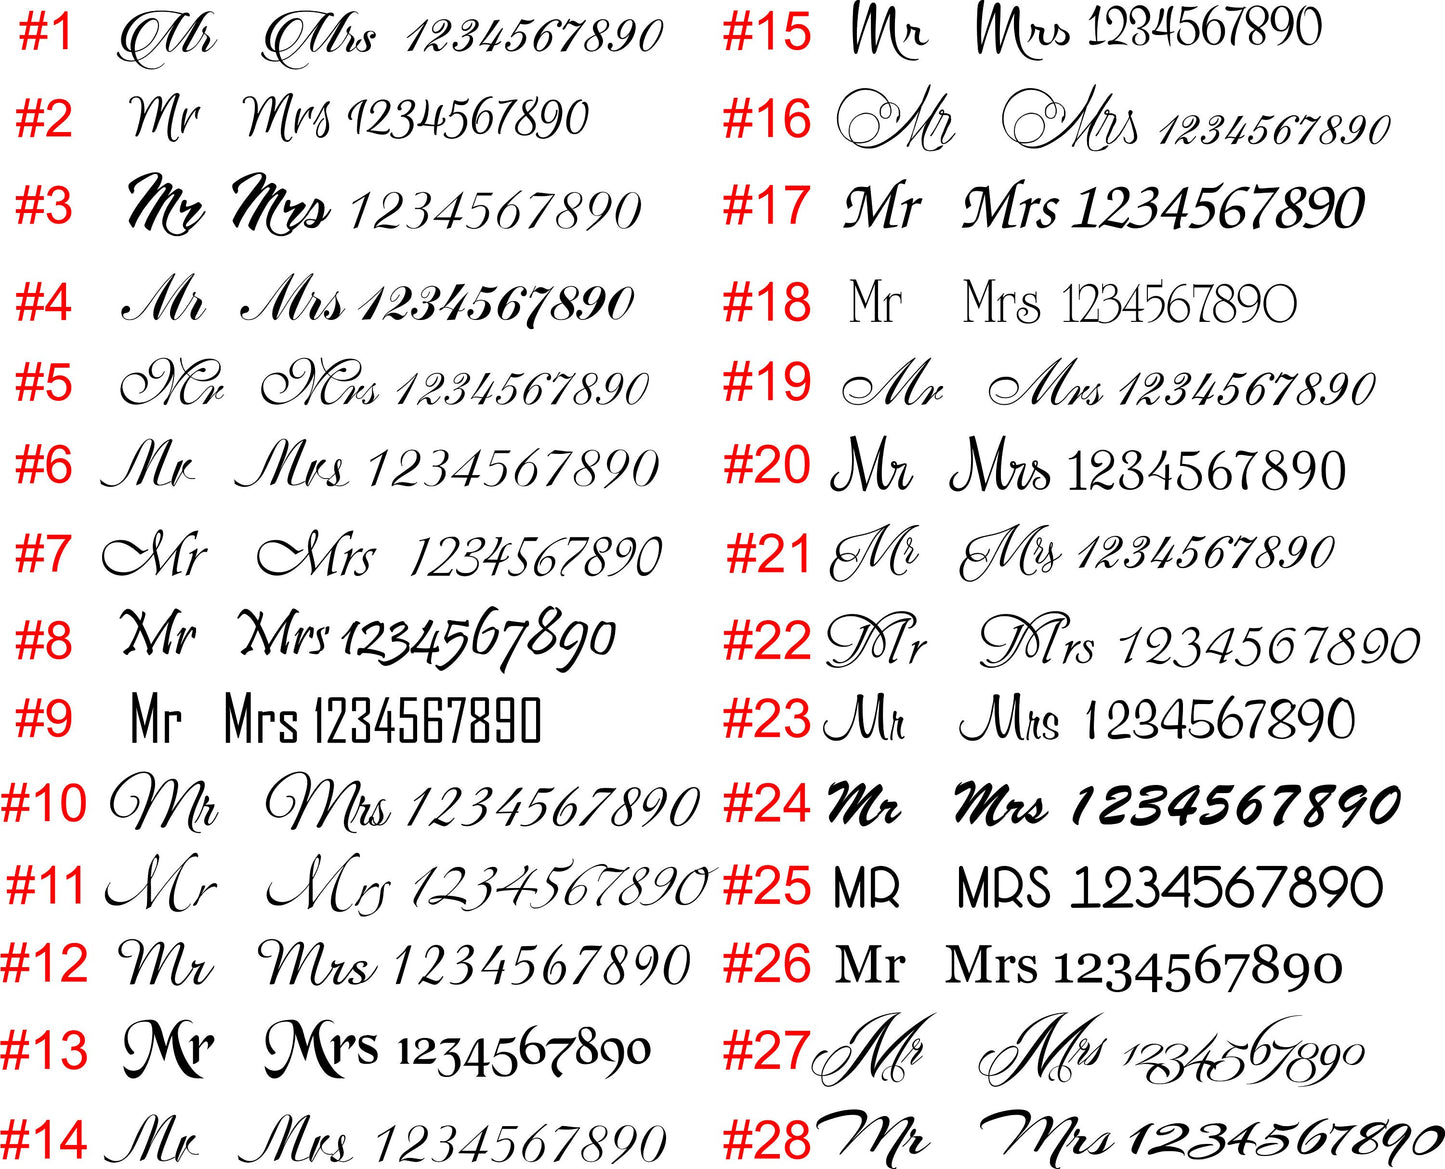 #1 Mr Mrs 1234567890
#2 Mr Mrs 1234567890
#3 Mr Mrs 1234567890
#4 Mr Mrs 1234567890
#5 Mr Mrs 1234567890
#6 Mr Mrs 1234567890
#7 Mr Mrs 1234567890
#8 Mr Mrs 1234567890
#9 Mr Mrs 1234567890
#10 Mr Mrs 1234567890
#11 Mr Mrs 1234567890
#12 Mr Mrs 1234567890
#13 Mr Mrs 1234567890
#14 Mr Mrs 1234567890
#15 Mr Mrs 1234567890
#16 Mr Mrs 1234567890
#17 Mr Mrs 1234567890
#18 Mr Mrs 1234567890
#19 Mr Mrs 1234567890
#20 Mr Mrs 1234567890
#21 Mr Mrs 1234567890
#22 Mr Mrs 1234567890
#23 Mr Mrs 1234567890
#24 Mr Mrs 1234567890
#25 MR MRS 1234567890
#26 Mr Mrs 1234567890
#27 Mr Mrs 1234567890
#28 Mr Mrs 1234567890